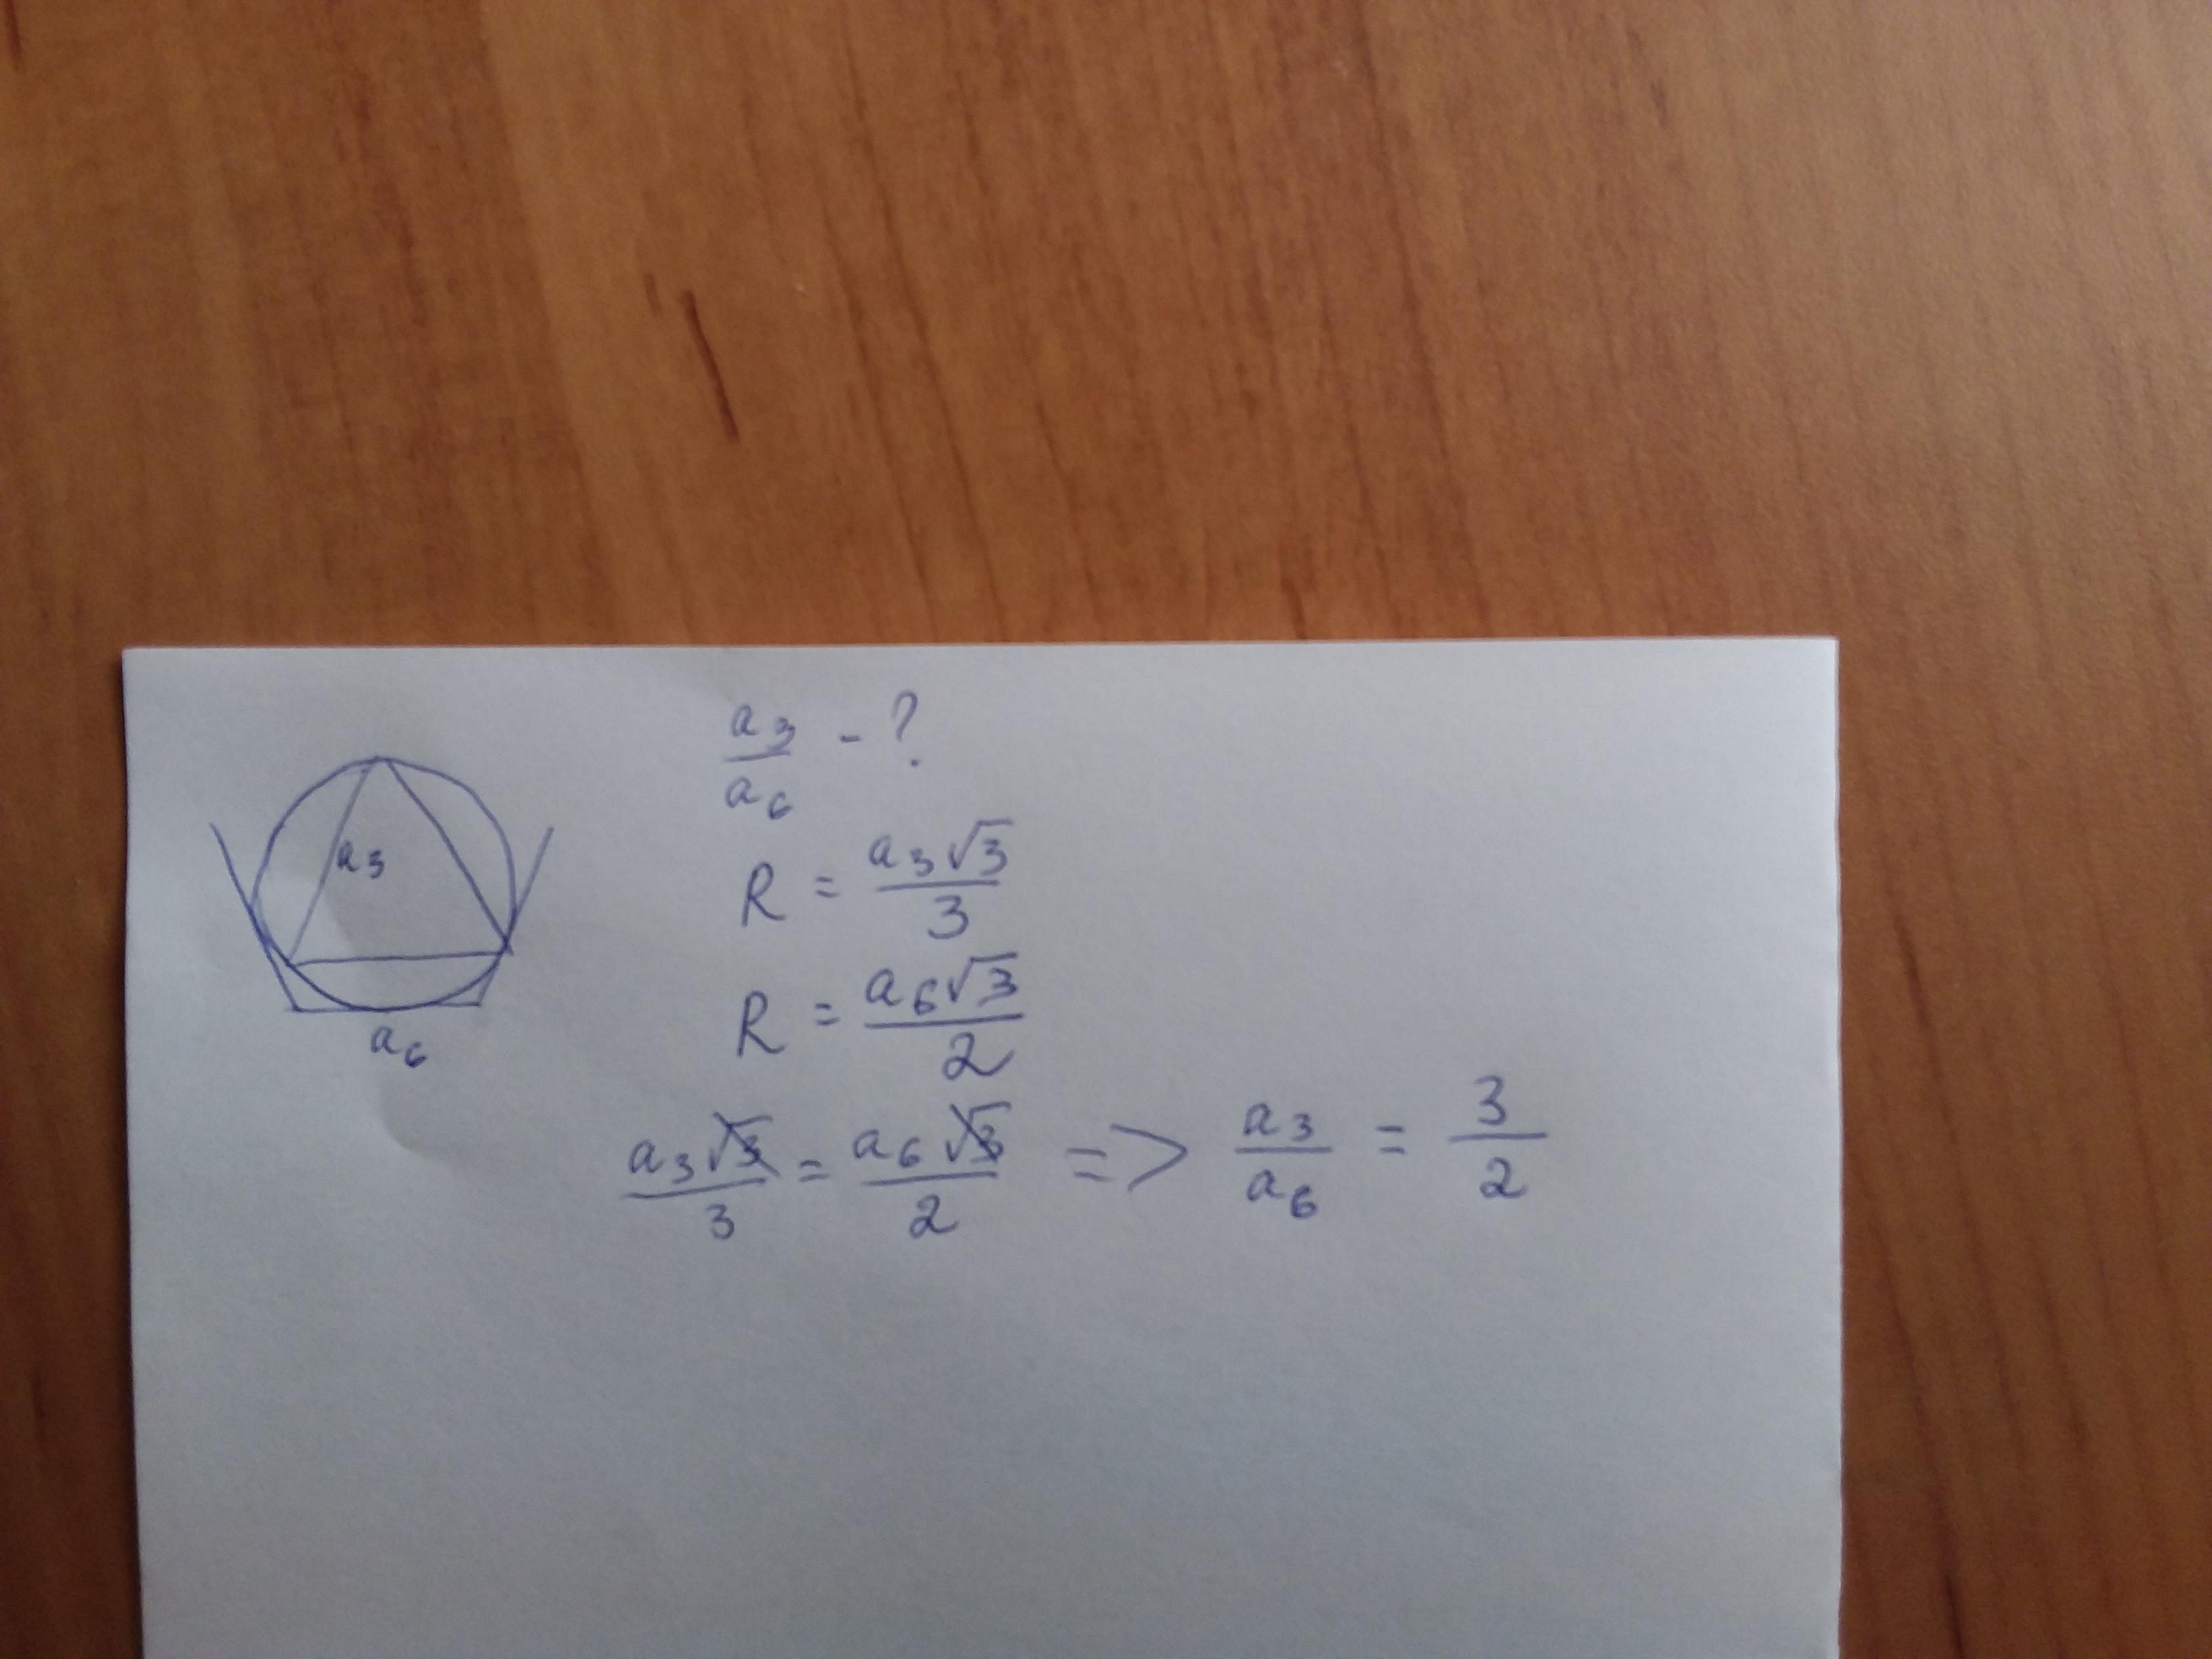 a₃/a₆ - ?
a₃
R = a₃√3/3
R = a₆√3/2
a₆
a₃√3/3 = a₆√3/2 => a₃/a₆ = 3/2